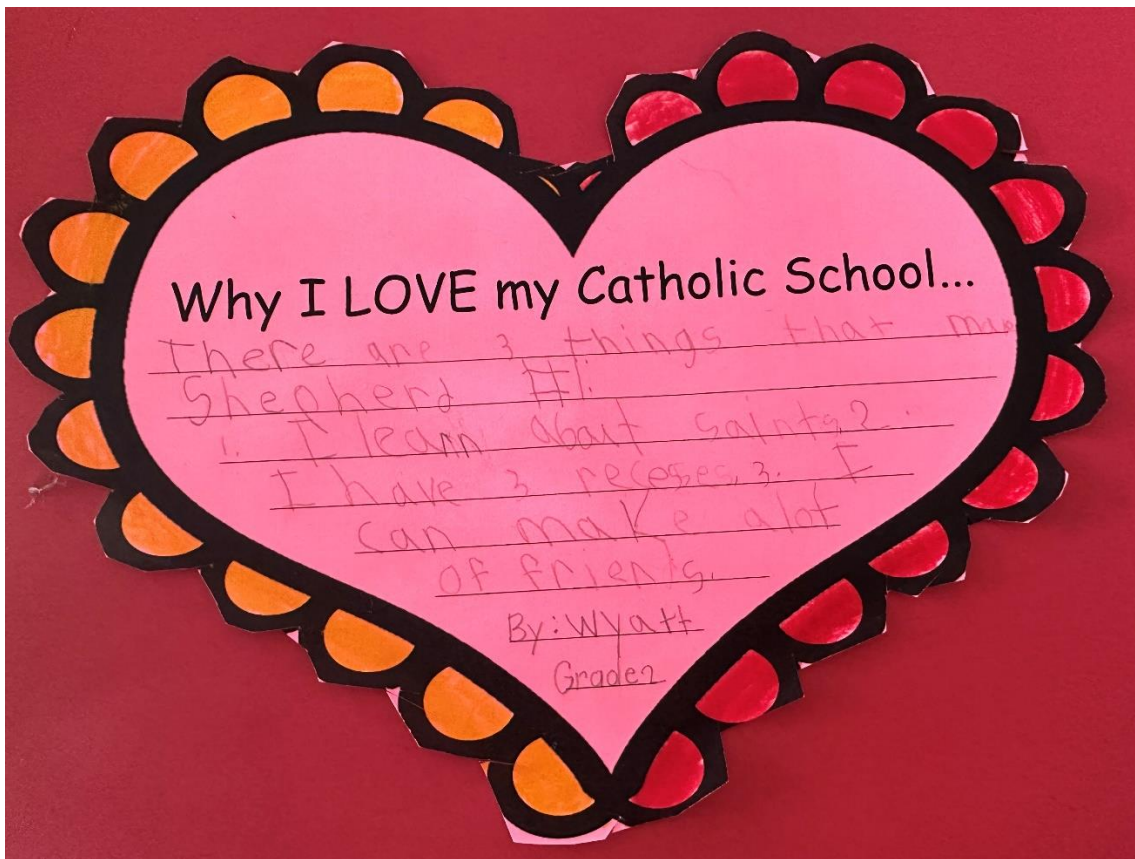 Why I LOVE my Catholic School...
There are 3 things that
Shepherd #1.
1. I learn about saints. 2.
I have 3 receses. 3. I
can make alot
of friends.
By: Wyatt
Grade 2